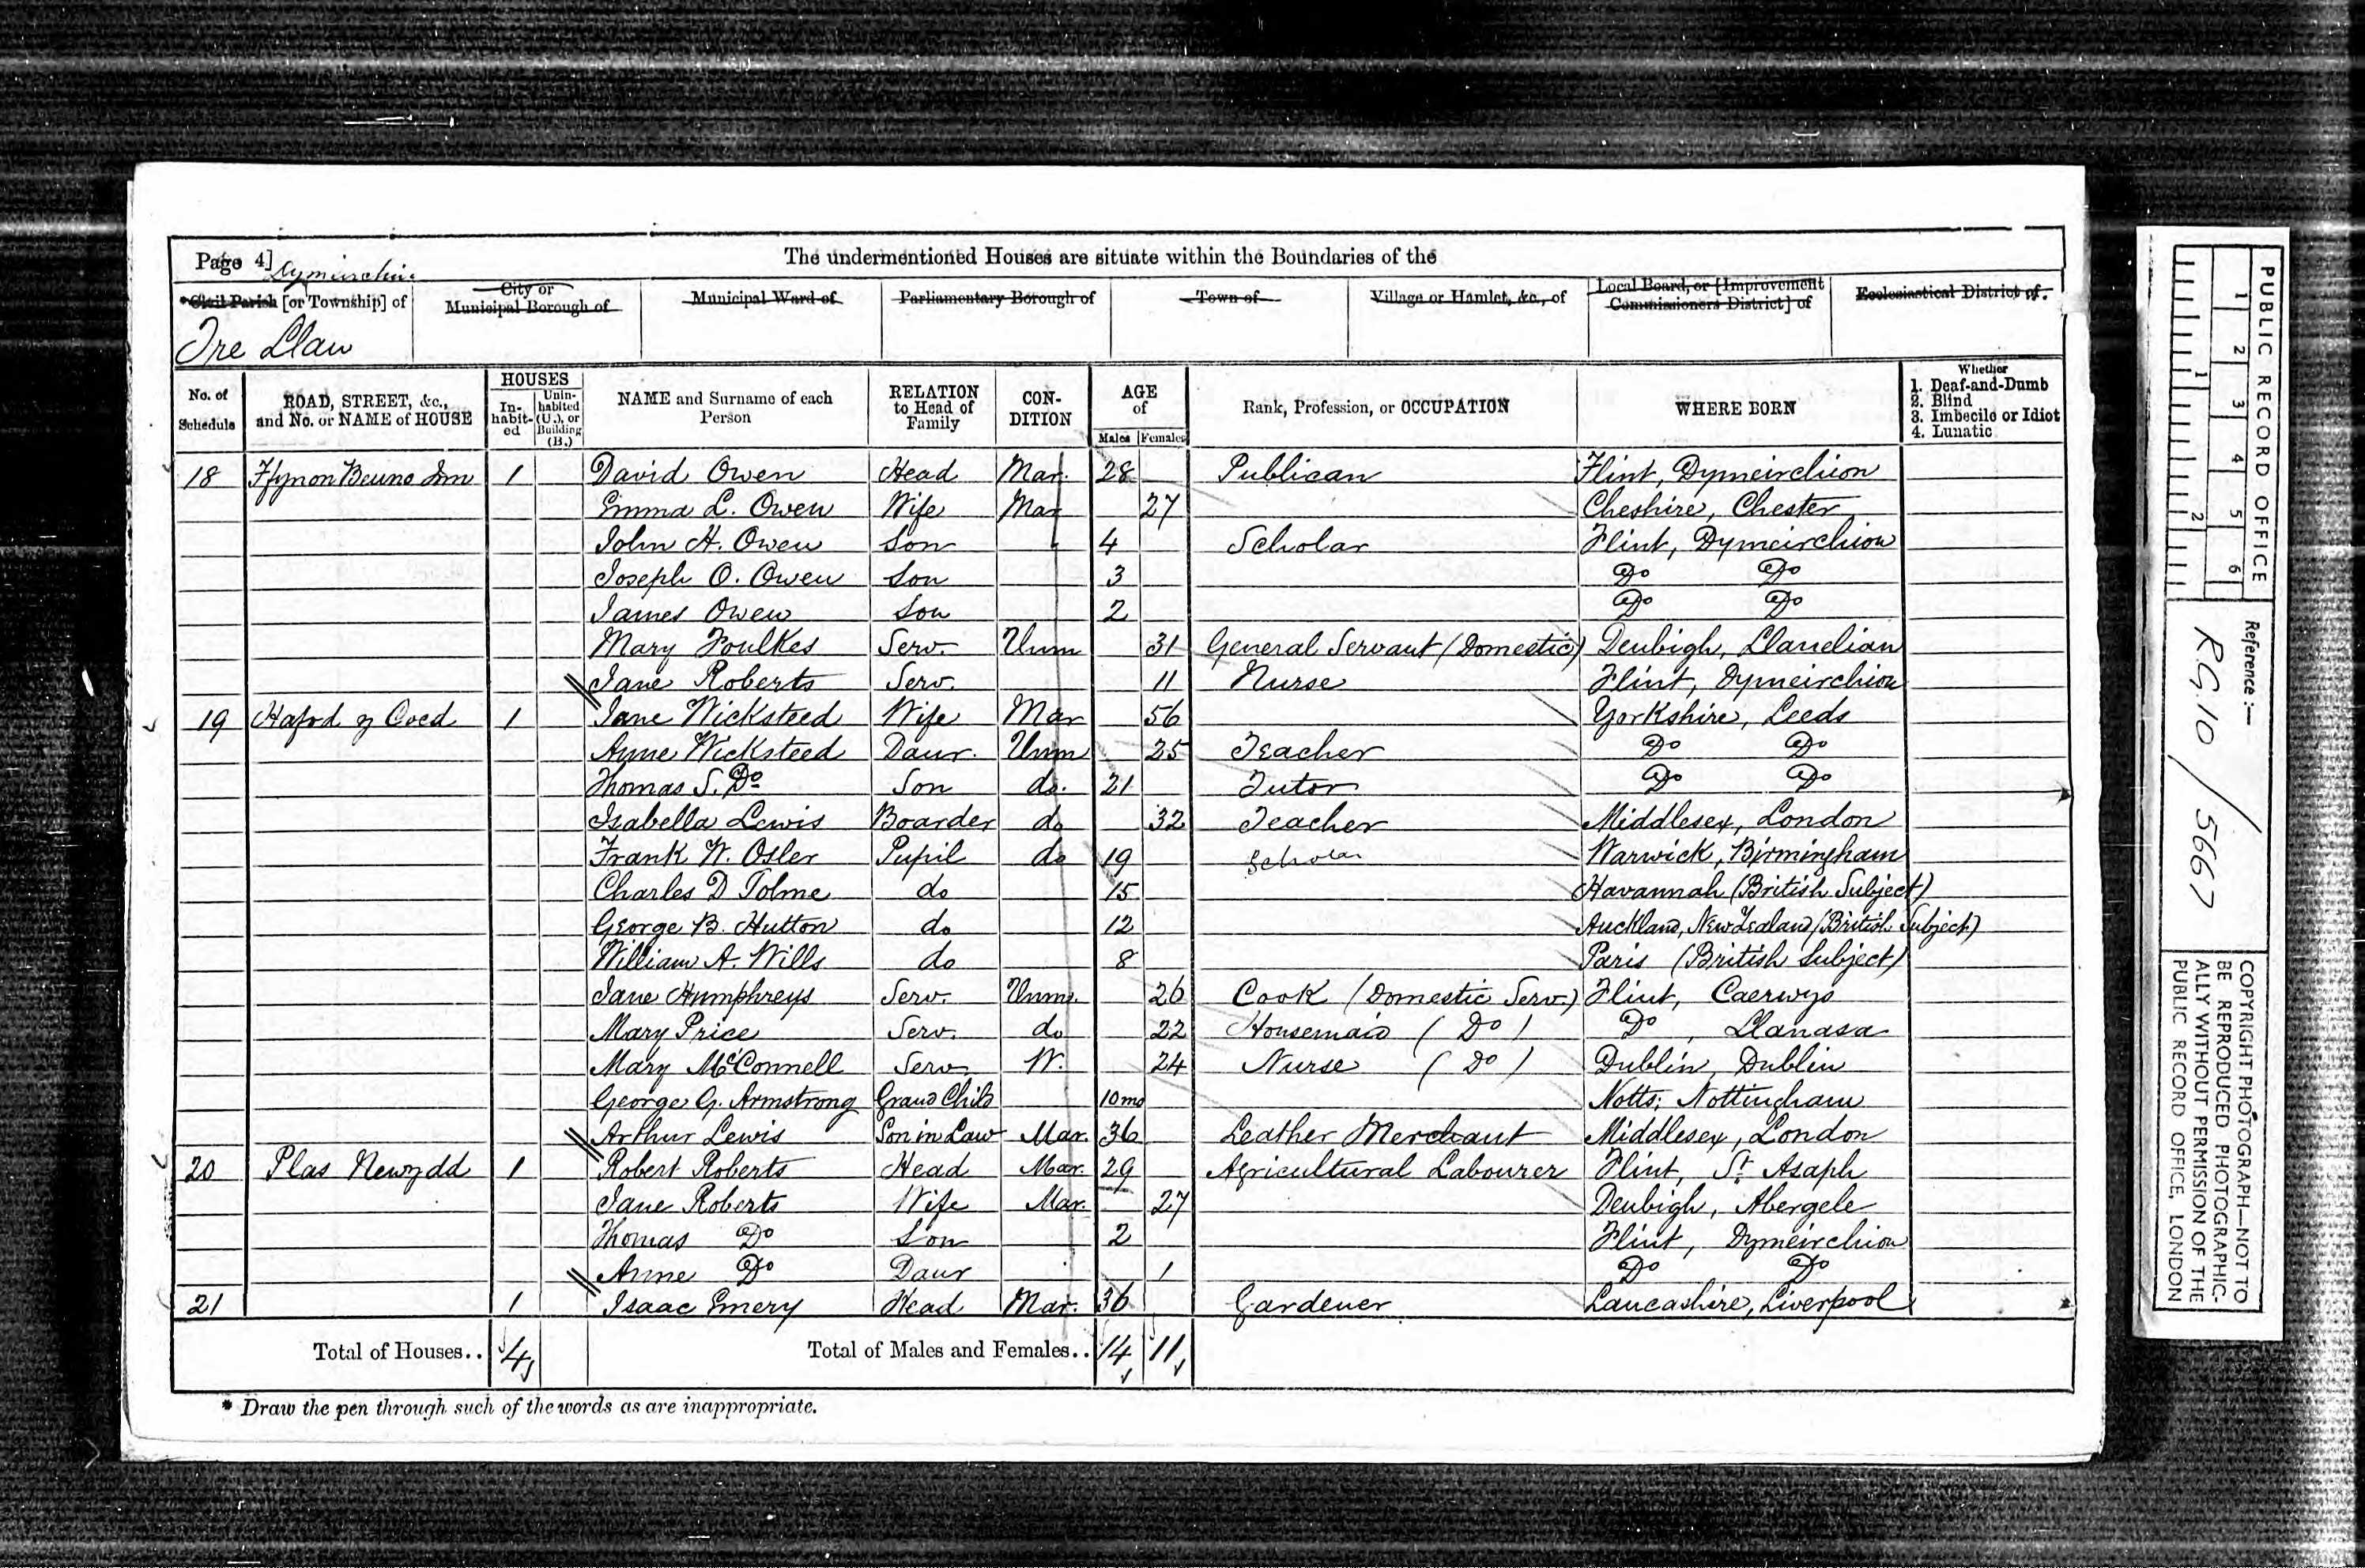 Page 4]
The undermentioned Houses are situate within the Boundaries of the
Dymeirchion
*Civil Parish [or Township] of
City or Municipal Borough of
Municipal Ward of
Parliamentary Borough of
Town of
Village or Hamlet, &c., of
Local Board, or [Improvement Commissioners District] of
Ecclesiastical District of.
Tre Llan
No. of Schedule
ROAD, STREET, &c., and No. or NAME of HOUSE
HOUSES
In-habit-ed
Unin-habited (U.), or Building (B.)
NAME and Surname of each Person
RELATION to Head of Family
CON-DITION
AGE of
Males
Females
Rank, Profession, or OCCUPATION
WHERE BORN
Whether
1. Deaf-and-Dumb
2. Blind
3. Imbecile or Idiot
4. Lunatic
18 Ffynon Beuno Inn 1 David Owen Head Mar. 28 Publican Flint, Dymeirchion
Emma L. Owen Wife Mar 27 Cheshire, Chester
John H. Owen Son 4 Scholar Flint, Dymeirchion
Joseph O. Owen Son 3 Do Do
James Owen Son 2 Do Do
Mary Foulkes Serv. Unm 31 General Servant (Domestic) Denbigh, Llanelian
Jane Roberts Serv. 11 Nurse Flint, Dymeirchion
19 Hafod y Coed 1 Jane Wicksteed Wife Mar 56 Yorkshire, Leeds
Anne Wicksteed Daur. Unm 25 Teacher Do Do
Thomas S. Do Son do. 21 Tutor Do Do
Isabella Lewis Boarder do 32 Teacher Middlesex, London
Frank W. Osler Pupil do 19 Scholar Warwick, Birmingham
Charles D Tolme do 15 Havannah (British Subject)
George B. Hutton do 12 Auckland, New Zealand (British Subject)
William A. Wills do 8 Paris (British Subject)
Jane Humphreys Serv. Unm. 26 Cook (Domestic Serv.) Flint, Caerwys
Mary Price Serv. do 22 Housemaid (Do) Do, Llanasa
Mary McConnell Serv. W. 24 Nurse (Do) Dublin, Dublin
George G. Armstrong Grand Child 10mo Notts; Nottingham
Arthur Lewis Son in Law Mar. 36 Leather Merchant Middlesex, London
20 Plas Newydd 1 Robert Roberts Head Mar. 29 Agricultural Labourer Flint, St. Asaph
Jane Roberts Wife Mar. 27 Denbigh, Abergele
Thomas Do Son 2 Flint, Dymeirchion
Anne Do Daur 1 Do Do
21 1 Isaac Emery Head Mar. 36 Gardener Lancashire, Liverpool
Total of Houses.. 4 Total of Males and Females.. 14 11
* Draw the pen through such of the words as are inappropriate.
PUBLIC RECORD OFFICE
1 2 3 4 5 6
1 2
Reference:—
RG 10 / 5667
COPYRIGHT PHOTOGRAPH—NOT TO
BE REPRODUCED PHOTOGRAPHIC-
ALLY WITHOUT PERMISSION OF THE
PUBLIC RECORD OFFICE, LONDON